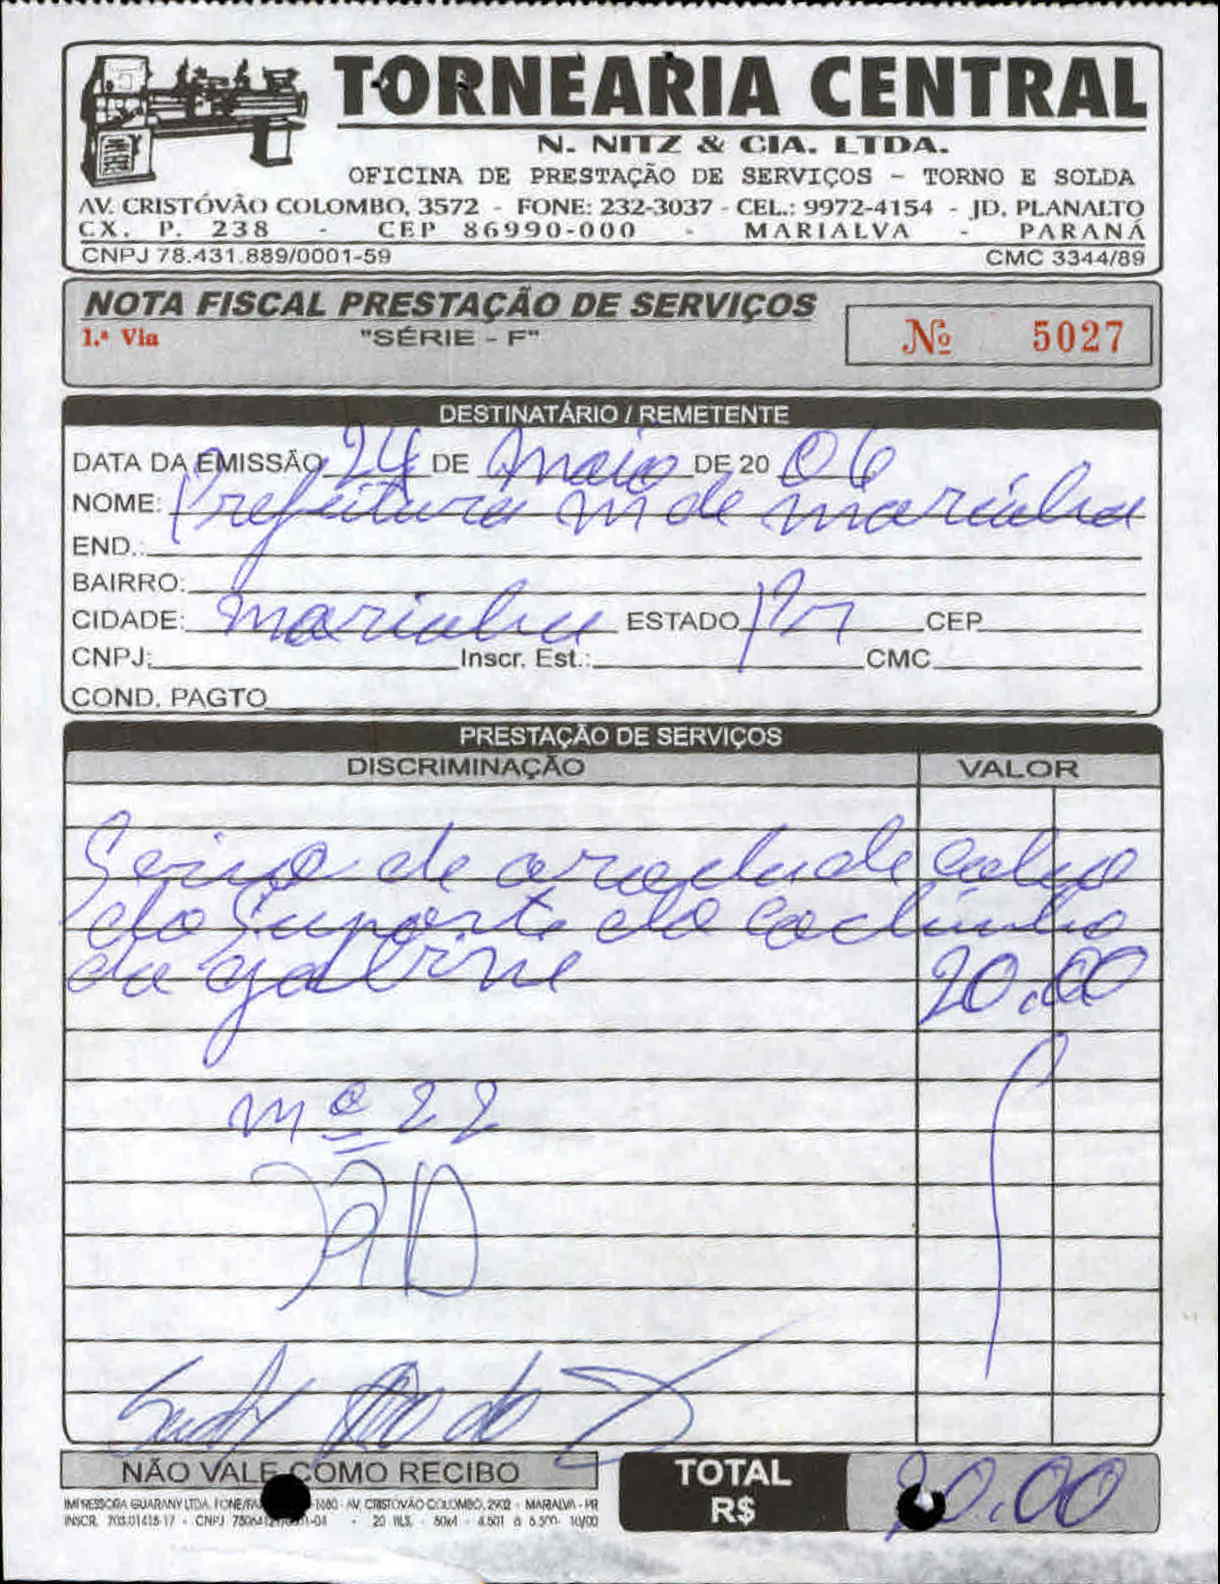 TORNEARIA CENTRAL
N. NITZ & CIA. LTDA.
OFICINA DE PRESTAÇÃO DE SERVIÇOS - TORNO E SOLDA
AV. CRISTÓVÃO COLOMBO, 3572 - FONE: 232-3037 - CEL.: 9972-4154 - JD. PLANALTO
CX. P. 238 - CEP 86990-000 - MARIALVA - PARANÁ
CNPJ 78.431.889/0001-59 CMC 3344/89
NOTA FISCAL PRESTAÇÃO DE SERVIÇOS
1.ª Via "SÉRIE - F" Nº 5027
DESTINATÁRIO / REMETENTE
DATA DA EMISSÃO 24 DE Maio DE 20 06
NOME: Prefeitura M de Marialva
END.:
BAIRRO:
CIDADE: Marialva ESTADO Pr CEP
CNPJ: Inscr. Est.: CMC
COND. PAGTO
PRESTAÇÃO DE SERVIÇOS
DISCRIMINAÇÃO VALOR
de
do Suporte do
da 20,00
22
NÃO VALE COMO RECIBO
TOTAL
R$ 20,00
IMPRESSORA GUARANY LTDA. FONE/FA 1680 - AV. CRISTÓVÃO COLOMBO, 2902 - MARIALVA - PR
INSCR. 703.01418-17 - CNPJ - 20 BLS. - 50x4 - 4.501 a 5.500 - 10/00